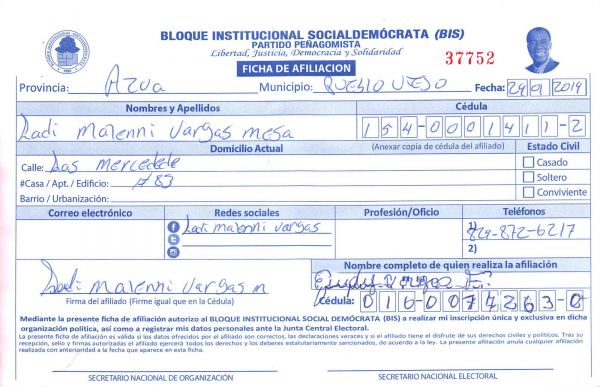 BLOQUE INSTITUCIONAL SOCIALDEMÓCRATA (BIS)
PARTIDO PEÑAGOMISTA
Libertad, Justicia, Democracia y Solidaridad
37752
FICHA DE AFILIACION
Provincia: Azua Municipio: Pueblo Viejo Fecha: 29 01 2019
Nombres y Apellidos Cédula
Ladi Malenni Vargas mesa 154-0001411-2
Domicilio Actual (Anexar copia de cédula del afiliado) Estado Civil
Calle: Las Mercedele Casado
#Casa / Apt. / Edificio: # 83 Soltero
Barrio / Urbanización: Conviviente
Correo electrónico Redes sociales Profesión/Oficio Teléfonos
Ladi malenni vargas 1) 829-872-6217
2)
Nombre completo de quien realiza la afiliación
Ladi malenni Vargas m
Firma del afiliado (Firme igual que en la Cédula) Cédula: 0160074263-0
Mediante la presente ficha de afiliación autorizo al BLOQUE INSTITUCIONAL SOCIALDEMÓCRATA (BIS) a realizar mi inscripción única y exclusiva en dicha
organización política, así como a registrar mis datos personales ante la Junta Central Electoral.
La presente ficha de afiliación es válida si los datos ofrecidos por el afiliado son correctos, las declaraciones veraces y si el afiliado tiene el disfrute de sus derechos civiles y politicos. Tras su
recepción, sello y firmas autorizadas el afiliado ejercerá todos los derechos y los deberes estatutariamente sancionados, de acuerdo a la ley. La presente afiliación anula cualquier afiliación
realizada con anterioridad a la fecha que aparece en esta ficha.
SECRETARIO NACIONAL DE ORGANIZACIÓN SECRETARIO NACIONAL ELECTORAL